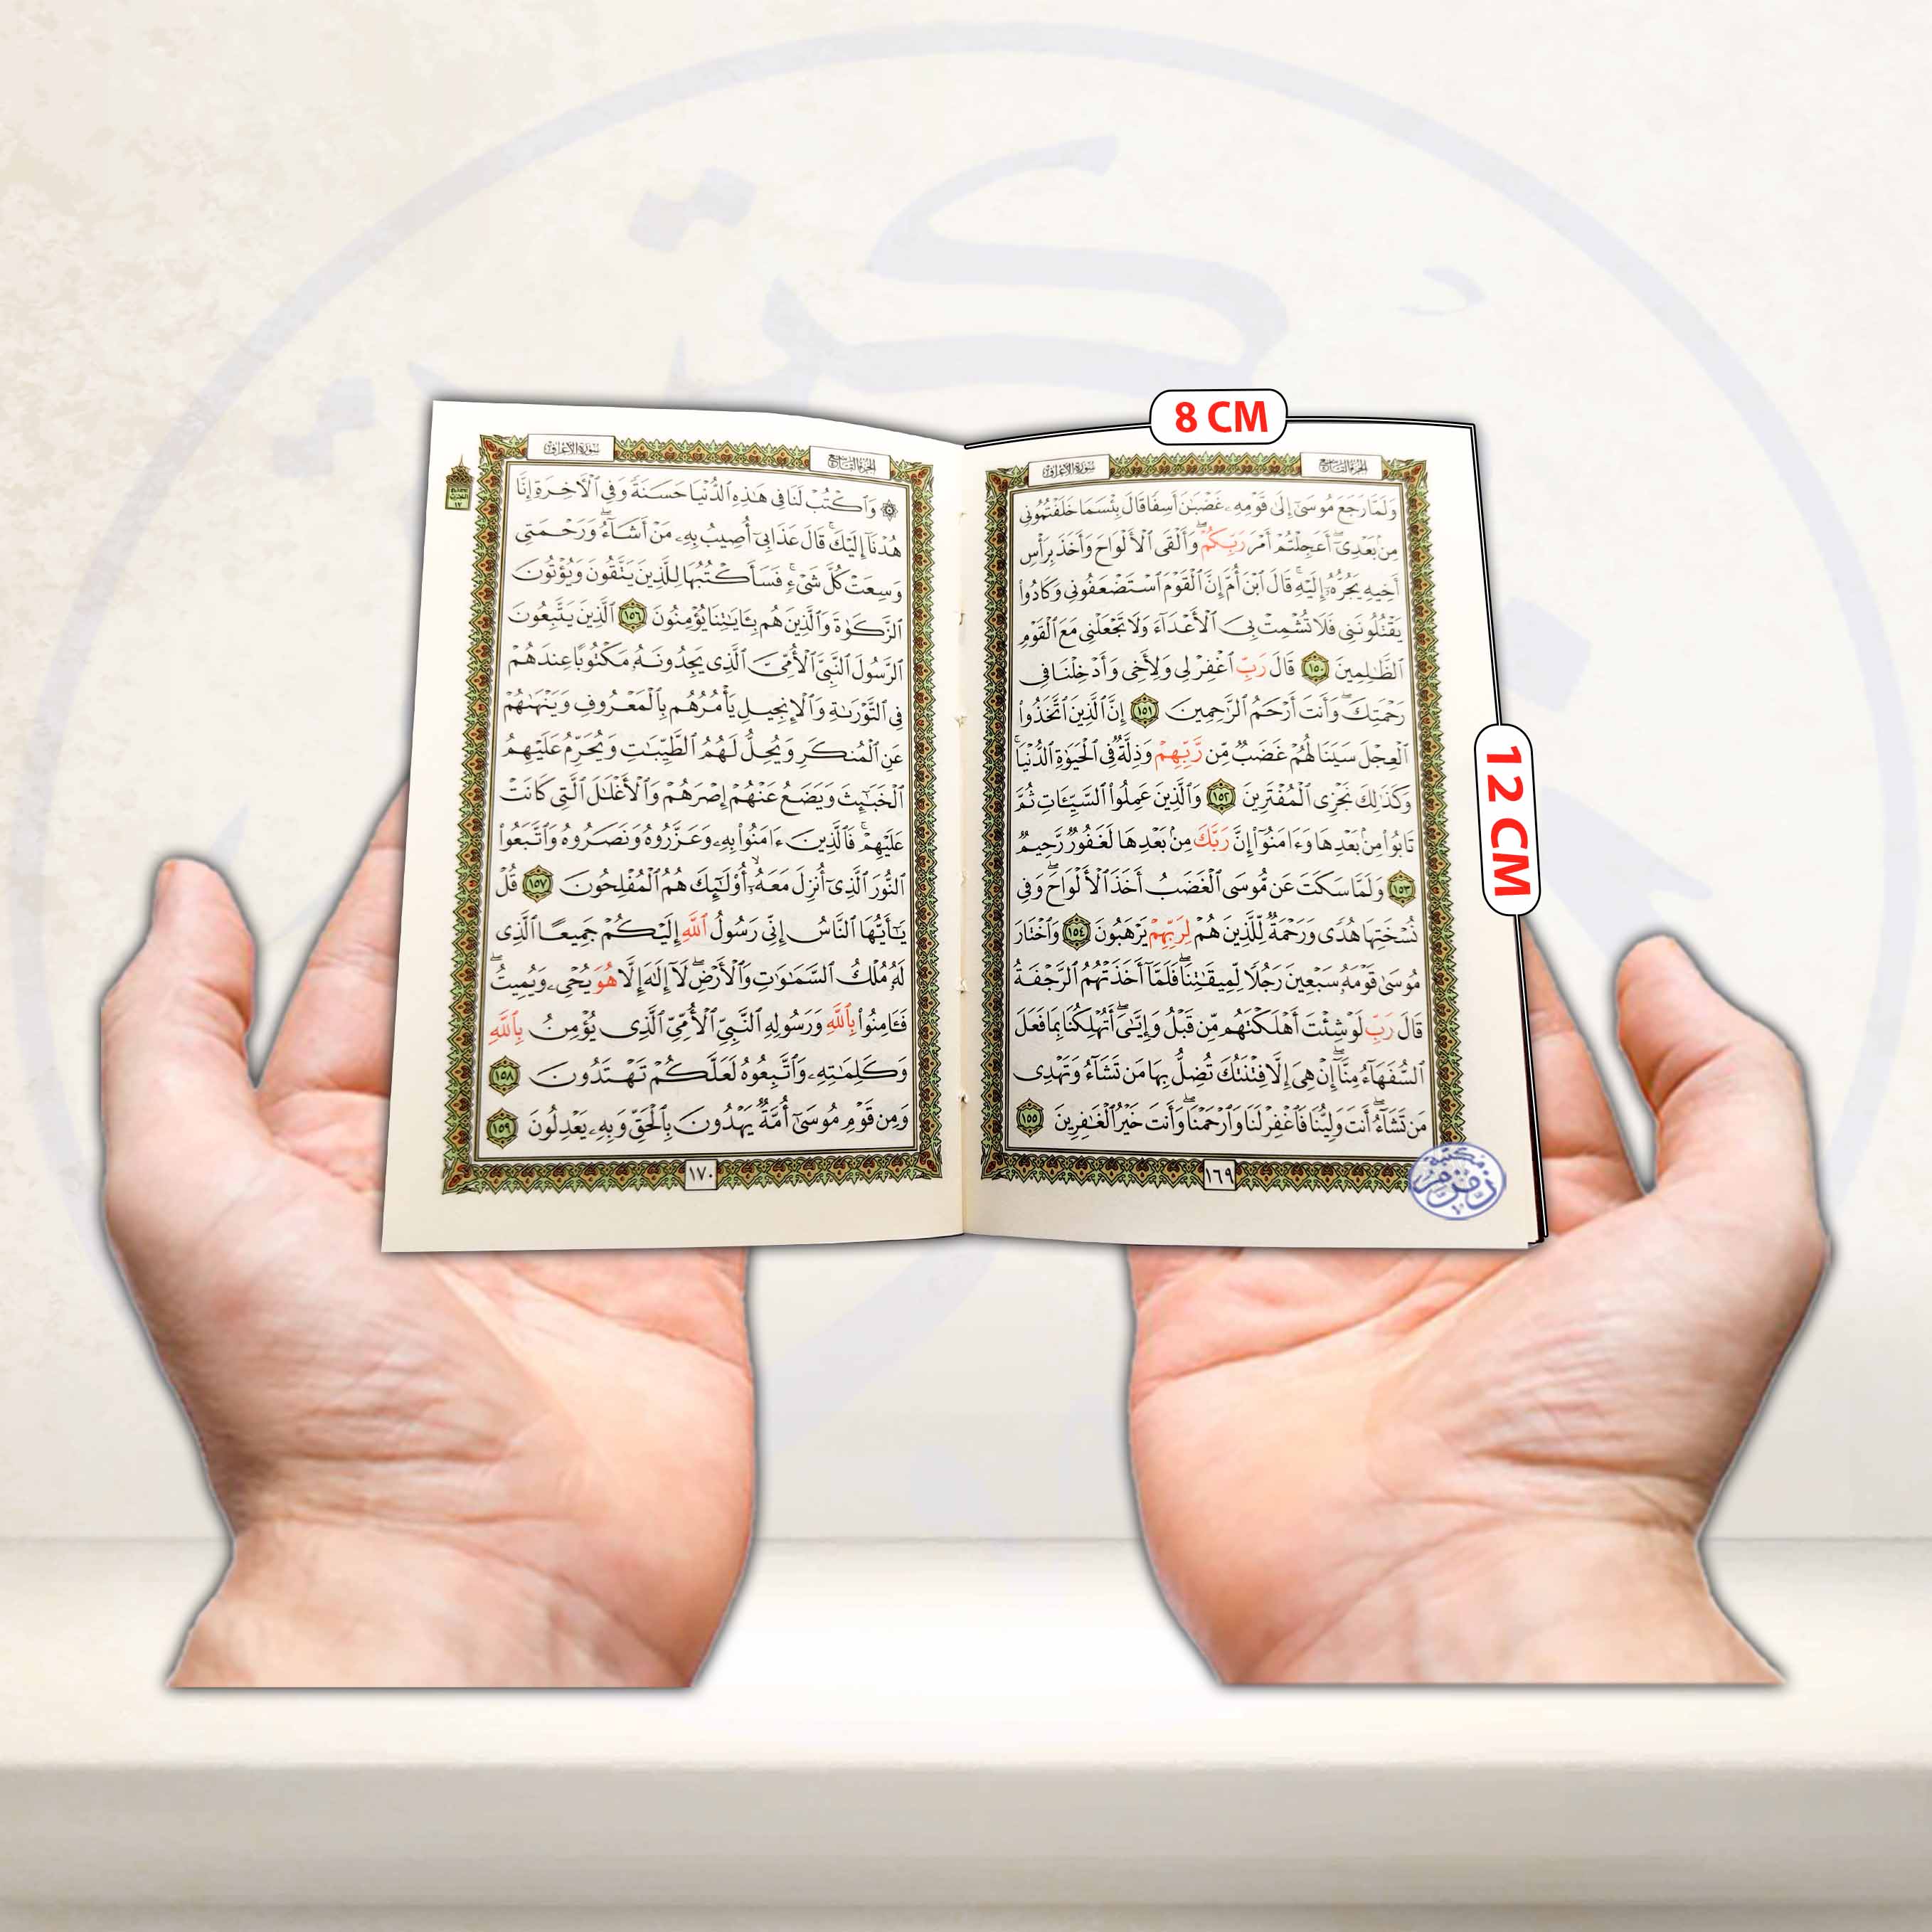 8 CM
12 CM
الجزء التاسع
سورة الأعراف
وَلَمَّا رَجَعَ مُوسَىٰٓ إِلَىٰ قَوْمِهِۦ غَضْبَٰنَ أَسِفًا قَالَ بِئْسَمَا خَلَفْتُمُونِى
مِنۢ بَعْدِىٓ ۖ أَعَجِلْتُمْ أَمْرَ رَبِّكُمْ ۖ وَأَلْقَى ٱلْأَلْوَاحَ وَأَخَذَ بِرَأْسِ
أَخِيهِ يَجُرُّهُۥٓ إِلَيْهِ ۚ قَالَ ٱبْنَ أُمَّ إِنَّ ٱلْقَوْمَ ٱسْتَضْعَفُونِى وَكَادُوا۟
يَقْتُلُونَنِى فَلَا تُشْمِتْ بِىَ ٱلْأَعْدَآءَ وَلَا تَجْعَلْنِى مَعَ ٱلْقَوْمِ
ٱلظَّٰلِمِينَ ١٥٠ قَالَ رَبِّ ٱغْفِرْ لِى وَلِأَخِى وَأَدْخِلْنَا فِى
رَحْمَتِكَ ۖ وَأَنتَ أَرْحَمُ ٱلرَّٰحِمِينَ ١٥١ إِنَّ ٱلَّذِينَ ٱتَّخَذُوا۟
ٱلْعِجْلَ سَيَنَالُهُمْ غَضَبٌ مِّن رَّبِّهِمْ وَذِلَّةٌ فِى ٱلْحَيَوٰةِ ٱلدُّنْيَا ۚ
وَكَذَٰلِكَ نَجْزِى ٱلْمُفْتَرِينَ ١٥٢ وَٱلَّذِينَ عَمِلُوا۟ ٱلسَّيِّـَٔاتِ ثُمَّ
تَابُوا۟ مِنۢ بَعْدِهَا وَءَامَنُوٓا۟ إِنَّ رَبَّكَ مِنۢ بَعْدِهَا لَغَفُورٌ رَّحِيمٌ
١٥٣ وَلَمَّا سَكَتَ عَن مُّوسَى ٱلْغَضَبُ أَخَذَ ٱلْأَلْوَاحَ ۖ وَفِى
نُسْخَتِهَا هُدًى وَرَحْمَةٌ لِّلَّذِينَ هُمْ لِرَبِّهِمْ يَرْهَبُونَ ١٥٤ وَٱخْتَارَ
مُوسَىٰ قَوْمَهُۥ سَبْعِينَ رَجُلًا لِّمِيقَٰتِنَا ۖ فَلَمَّآ أَخَذَتْهُمُ ٱلرَّجْفَةُ
قَالَ رَبِّ لَوْ شِئْتَ أَهْلَكْتَهُم مِّن قَبْلُ وَإِيَّٰىَ ۖ أَتُهْلِكُنَا بِمَا فَعَلَ
ٱلسُّفَهَآءُ مِنَّآ ۖ إِنْ هِىَ إِلَّا فِتْنَتُكَ تُضِلُّ بِهَا مَن تَشَآءُ وَتَهْدِى
مَن تَشَآءُ ۖ أَنتَ وَلِيُّنَا فَٱغْفِرْ لَنَا وَٱرْحَمْنَا ۖ وَأَنتَ خَيْرُ ٱلْغَٰفِرِينَ ١٥٥
١٦٩
مكتبة
زمزم
الجزء التاسع
سورة الأعراف
۞ وَٱكْتُبْ لَنَا فِى هَٰذِهِ ٱلدُّنْيَا حَسَنَةً وَفِى ٱلْـَٔاخِرَةِ إِنَّا
هُدْنَآ إِلَيْكَ ۚ قَالَ عَذَابِىٓ أُصِيبُ بِهِۦ مَنْ أَشَآءُ ۖ وَرَحْمَتِى
وَسِعَتْ كُلَّ شَىْءٍ ۚ فَسَأَكْتُبُهَا لِلَّذِينَ يَتَّقُونَ وَيُؤْتُونَ
ٱلزَّكَوٰةَ وَٱلَّذِينَ هُم بِـَٔايَٰتِنَا يُؤْمِنُونَ ١٥٦ ٱلَّذِينَ يَتَّبِعُونَ
ٱلرَّسُولَ ٱلنَّبِىَّ ٱلْأُمِّىَّ ٱلَّذِى يَجِدُونَهُۥ مَكْتُوبًا عِندَهُمْ
فِى ٱلتَّوْرَىٰةِ وَٱلْإِنجِيلِ يَأْمُرُهُم بِٱلْمَعْرُوفِ وَيَنْهَىٰهُمْ
عَنِ ٱلْمُنكَرِ وَيُحِلُّ لَهُمُ ٱلطَّيِّبَٰتِ وَيُحَرِّمُ عَلَيْهِمُ
ٱلْخَبَٰٓئِثَ وَيَضَعُ عَنْهُمْ إِصْرَهُمْ وَٱلْأَغْلَٰلَ ٱلَّتِى كَانَتْ
عَلَيْهِمْ ۚ فَٱلَّذِينَ ءَامَنُوا۟ بِهِۦ وَعَزَّرُوهُ وَنَصَرُوهُ وَٱتَّبَعُوا۟
ٱلنُّورَ ٱلَّذِىٓ أُنزِلَ مَعَهُۥٓ ۙ أُو۟لَٰٓئِكَ هُمُ ٱلْمُفْلِحُونَ ١٥٧ قُلْ
يَٰٓأَيُّهَا ٱلنَّاسُ إِنِّى رَسُولُ ٱللَّهِ إِلَيْكُمْ جَمِيعًا ٱلَّذِى
لَهُۥ مُلْكُ ٱلسَّمَٰوَٰتِ وَٱلْأَرْضِ ۖ لَآ إِلَٰهَ إِلَّا هُوَ يُحْىِۦ وَيُمِيتُ ۖ
فَـَٔامِنُوا۟ بِٱللَّهِ وَرَسُولِهِ ٱلنَّبِىِّ ٱلْأُمِّىِّ ٱلَّذِى يُؤْمِنُ بِٱللَّهِ
وَكَلِمَٰتِهِۦ وَٱتَّبِعُوهُ لَعَلَّكُمْ تَهْتَدُونَ ١٥٨
وَمِن قَوْمِ مُوسَىٰٓ أُمَّةٌ يَهْدُونَ بِٱلْحَقِّ وَبِهِۦ يَعْدِلُونَ ١٥٩
١٧٠